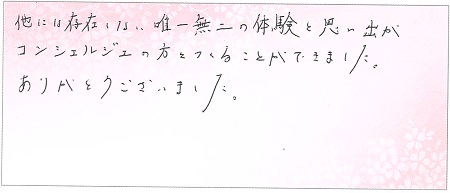 他には存在しない唯一無二の体験と思い出が
コンシェルジュの方とつくることができました。
ありがとうございました。